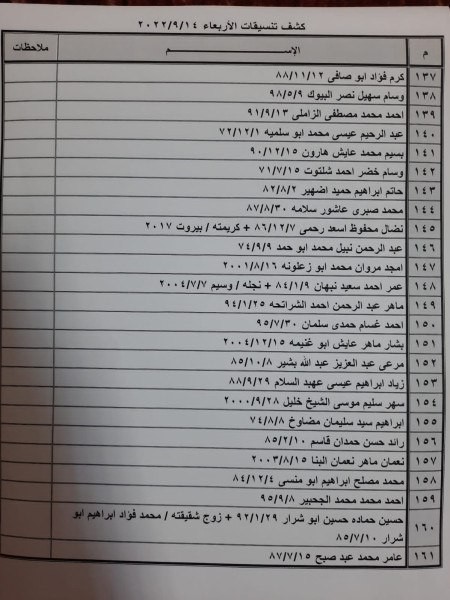 كشف تنسيقات الأربعاء ٢٠٢٢/٩/١٤
م الإســـــم ملاحظات
١٣٧ كرم فؤاد ابو صافى ٨٨/١١/١٢
١٣٨ وسام سهيل نصر البيوك ٩٨/٥/٩
١٣٩ احمد محمد مصطفى الزاملى ٩١/٩/١٣
١٤٠ عبد الرحيم عيسى محمد ابو سلميه ٧٢/١٢/١
١٤١ بسيم محمد عايش هارون ٩٠/١٢/١٥
١٤٢ وسام خضر احمد شلتوت ٧١/٧/١٥
١٤٣ حاتم ابراهيم حميد اضهير ٨٢/٨/٢
١٤٤ محمد صبرى عاشور سلامه ٨٧/٨/٣٠
١٤٥ نضال محفوظ اسعد رحمى ٨٦/١٢/٧ + كريمته / بيروت ٢٠١٧
١٤٦ عبد الرحمن نبيل محمد ابو حمد ٧٤/٩/٩
١٤٧ امجد مروان محمد ابو زعلونه ٢٠٠١/٨/١٦
١٤٨ عمر احمد سعيد نبهان ٨٤/١/٩ + نجله / وسيم ٢٠٠٤/٧/٧
١٤٩ ماهر عبد الرحمن احمد الشراتحه ٩٤/١/٢٥
١٥٠ احمد غسام حمدى سلمان ٩٥/٧/٣٠
١٥١ بشار ماهر عايش ابو غنيمه ٢٠٠٤/١٢/١٥
١٥٢ مرعى عبد العزيز عبد الله بشير ٨٥/١٠/٨
١٥٣ زياد ابراهيم عيسى عهبد السلام ٨٨/٩/٢٩
١٥٤ سهر سليم موسى الشيخ خليل ٢٠٠٠/٩/٢٨
١٥٥ ابراهيم سيد سليمان مضاوخ ٧٤/٨/٨
١٥٦ رائد حسن حمدان قاسم ٨٥/٢/١٠
١٥٧ نعمان ماهر نعمان البنا ٢٠٠٣/٨/١٥
١٥٨ محمد مصلح ابراهيم ابو منسى ٨٤/١٢/٤
١٥٩ احمد محمد محمد الجحبير ٩٥/٩/٨
١٦٠ حسين حماده حسين ابو شرار ٩٢/١/٢٩ + زوج شقيقته / محمد فؤاد ابراهيم ابو
شرار ٨٥/٧/١٠
١٦١ عامر محمد عبد صبح ٨٧/٧/١٥